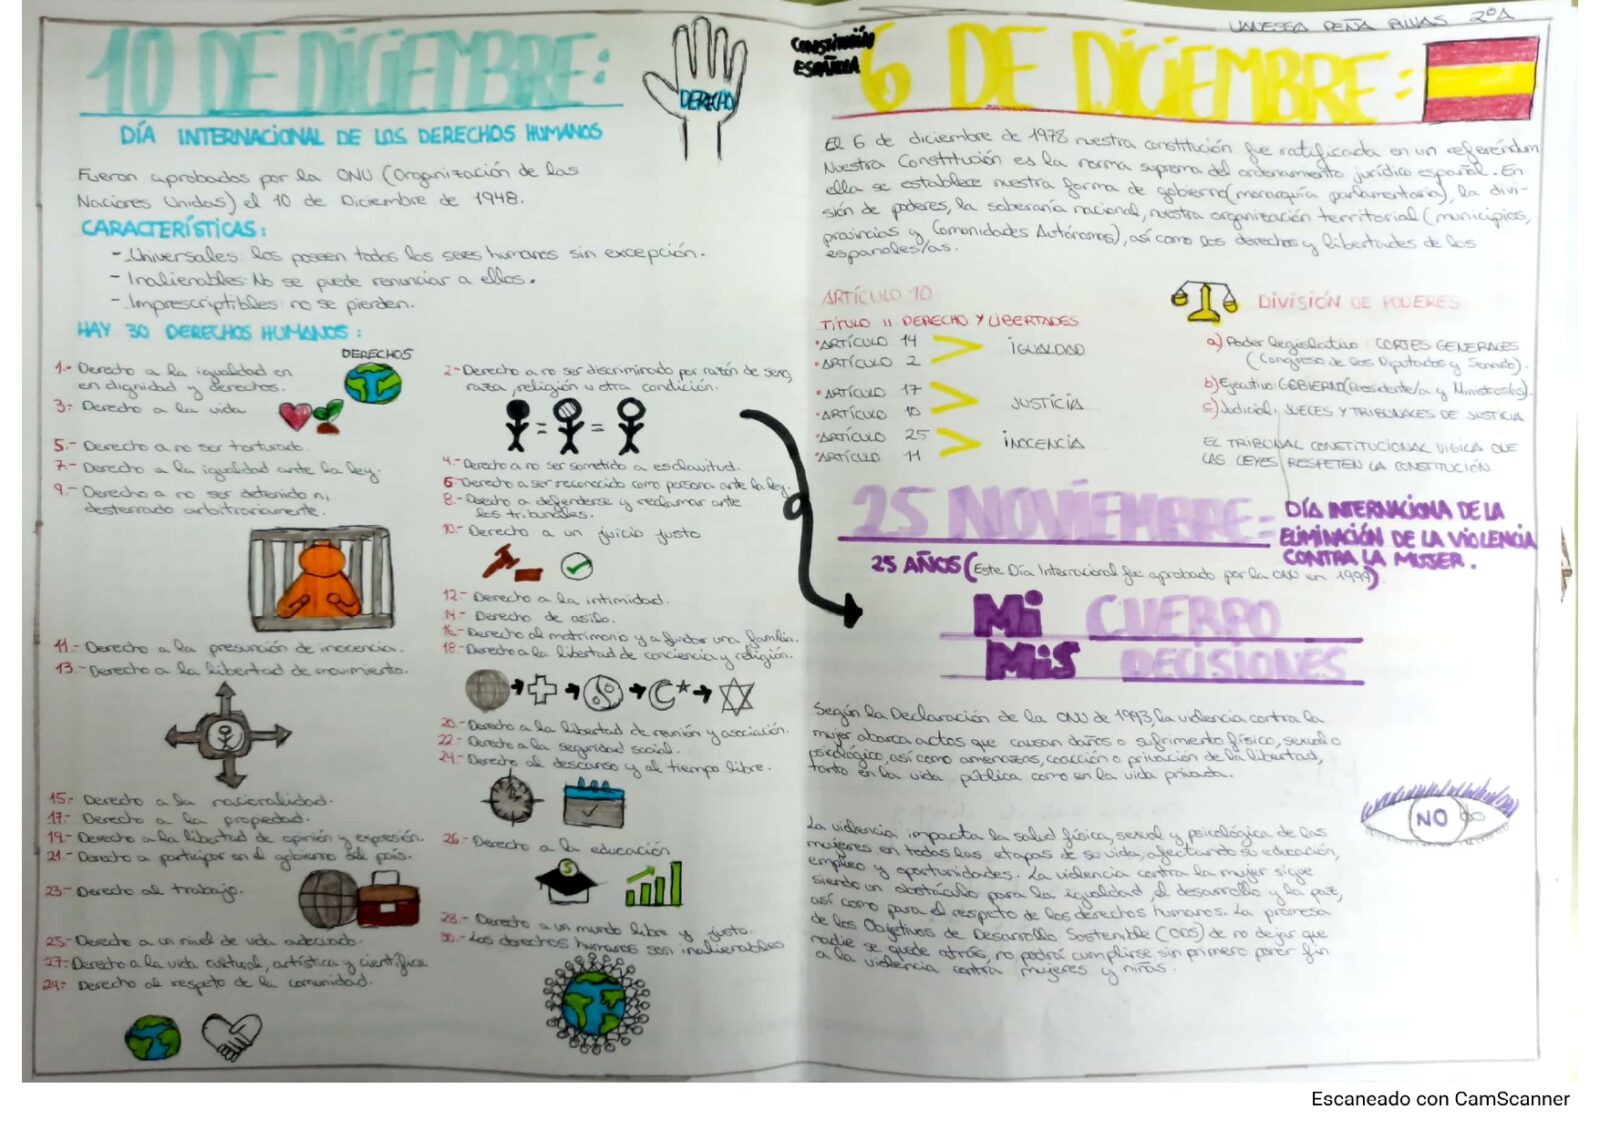 VANESSA PEÑA RIVAS 2ºA
10 DE DICIEMBRE:
DERECHO
DÍA INTERNACIONAL DE LOS DERECHOS HUMANOS
Fueron aprobados por la ONU (Organización de las
Naciones Unidas) el 10 de Diciembre de 1948.
CARACTERÍSTICAS:
- Universales: los poseen todos los seres humanos sin excepción.
- Inalienables: No se puede renunciar a ellos.
- Imprescriptibles: no se pierden.
HAY 30 DERECHOS HUMANOS:
DERECHOS
1.- Derecho a la igualdad en
en dignidad y derechos.
2- Derecho a no ser discriminado por razón de sexo,
raza, religión u otra condición.
3.- Derecho a la vida
4.- Derecho a no ser sometido a esclavitud.
5.- Derecho a no ser torturado.
6- Derecho a ser reconocido como persona ante la ley.
7.- Derecho a la igualdad ante la ley.
8.- Derecho a defenderse y reclamar ante
los tribunales.
9.- Derecho a no ser detenido ni
desterrado arbitrariamente.
10.- Derecho a un juicio justo
11.- Derecho a la presunción de inocencia.
12.- Derecho a la intimidad.
13.- Derecho a la libertad de movimiento.
14.- Derecho de asilo.
16.- Derecho al matrimonio y a fundar una familia.
18.- Derecho a la libertad de conciencia y religión.
15.- Derecho a la nacionalidad.
17.- Derecho a la propiedad.
19.- Derecho a la libertad de opinión y expresión.
21.- Derecho a participar en el gobierno del país.
20.- Derecho a la libertad de reunión y asociación.
22.- Derecho a la seguridad social.
24.- Derecho al descanso y al tiempo libre.
23.- Derecho al trabajo.
26.- Derecho a la educación
$
25.- Derecho a un nivel de vida adecuado.
27.- Derecho a la vida cultural, artística y científica
29.- Derecho al respeto de la comunidad.
28.- Derecho a un mundo libre y justo.
30.- Los derechos humanos son inalienables
CONSTITUCIÓN
ESPAÑOLA
6 DE DICIEMBRE:
El 6 de diciembre de 1978 nuestra constitución fue ratificada en un referéndum
Nuestra Constitución es la norma suprema del ordenamiento jurídico español. En
ella se establece nuestra forma de gobierno (monarquía parlamentaria), la divi-
sión de poderes, la soberanía nacional, nuestra organización territorial (municipios,
provincias y Comunidades Autónomas), así como los derechos y libertades de los
españoles/as.
ARTÍCULO 10
TÍTULO 11 DERECHO Y LIBERTADES
• ARTÍCULO 14
• ARTÍCULO 2
IGUALDAD
• ARTÍCULO 17
• ARTÍCULO 10
JUSTICIA
• ARTÍCULO 25
• ARTÍCULO 11
INOCENCIA
DIVISIÓN DE PODERES
a) Poder legislativo: CORTES GENERALES
(Congreso de los Diputados y Senado).
b) Ejecutivo: GOBIERNO (Presidente/a y Ministros/as).
c) Judicial: JUECES Y TRIBUNALES DE JUSTICIA
EL TRIBUNAL CONSTITUCIONAL VIGILA QUE
LAS LEYES RESPETEN LA CONSTITUCIÓN.
25 NOVIEMBRE:
DÍA INTERNACIONA DE LA
ELIMINACIÓN DE LA VIOLENCIA
CONTRA LA MUJER.
25 AÑOS (Este Día Internacional fue aprobado por la ONU en 1999)
Mi CUERPO
MIS DECISIONES
Según la Declaración de la ONU de 1993, la violencia contra la
mujer abarca actos que causan daños o sufrimiento físico, sexual o
psicológico, así como amenazas, coacción o privación de la libertad,
tanto en la vida pública como en la vida privada.
NO
La violencia impacta la salud física, sexual y psicológica de las
mujeres en todas las etapas de su vida, afectando su educación,
empleo y oportunidades. La violencia contra la mujer sigue
siendo un obstáculo para la igualdad, el desarrollo y la paz,
así como para el respeto de los derechos humanos. La promesa
de los Objetivos de Desarrollo Sostenible (ODS) de no dejar que
nadie se quede atrás, no podrá cumplirse sin primero poner fin
a la violencia contra mujeres y niñas.
Escaneado con CamScanner